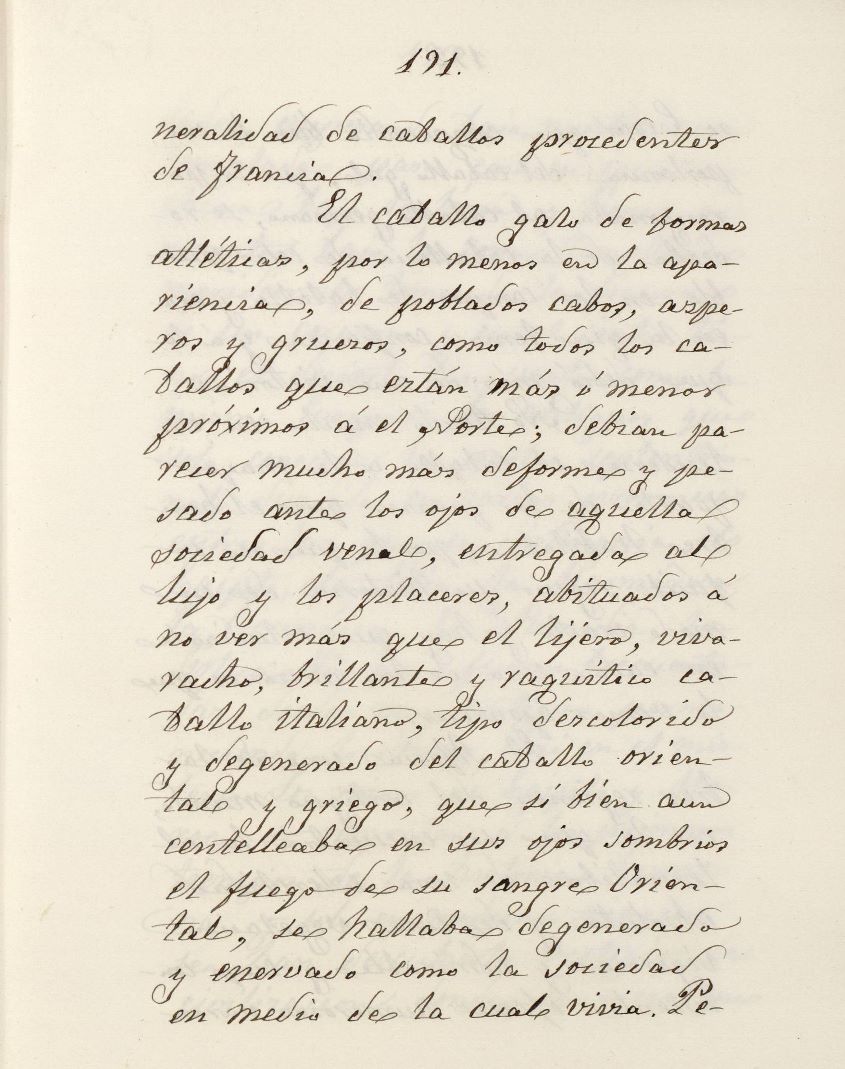 191.
neralidad de caballos procedentes
de Francia.
El caballo galo de formas
atléticas, por lo menos en la apa-
riencia, de poblados cabos, aspe-
ros y gruesos, como todos los ca-
ballos que están más ó menos
próximos á el Norte; debian pa-
recer mucho más deforme y pe-
sado ante los ojos de aquella
sociedad venal, entregada al
lujo y los placeres, abituados á
no ver más que el lijero, viva-
racho, brillante y raquitico ca-
ballo italiano, tipo descolorido
y degenerado del caballo orien-
tal y griego, que si bien aun
centelleaba en sus ojos sombrios
el fuego de su sangre Orien-
tal, se hallaba degenerado
y enervado como la sociedad
en medio de la cual vivia. Pe-